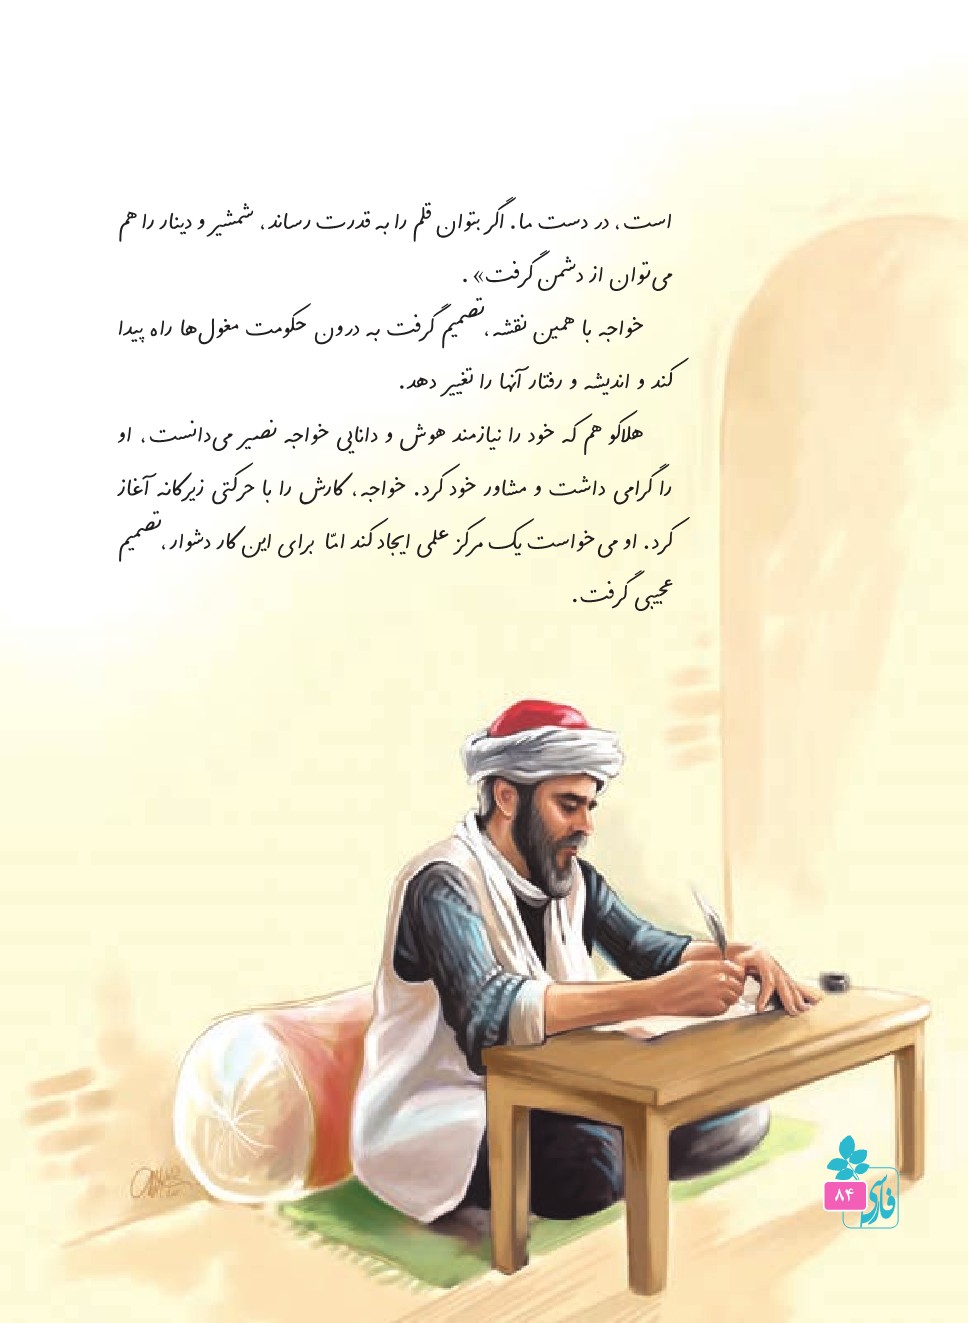 است، در دست ما. اگر بتوان قلم را به قدرت رساند، شمشیر و دینار را هم
می‌توان از دشمن گرفت» .
خواجه با همین نقشه، تصمیم گرفت به درون حکومت مغول‌ها راه پیدا
کند و اندیشه و رفتار آنها را تغییر دهد.
هلاکو هم که خود را نیازمند هوش و دانایی خواجه نصیر می‌دانست، او
را گرامی داشت و مشاور خود کرد. خواجه، کارش را با حرکتی زیرکانه آغاز
کرد. او می‌خواست یک مرکز علمی ایجاد کند امّا برای این کار دشوار، تصمیم
عجیبی گرفت.
فارسی
۸۴